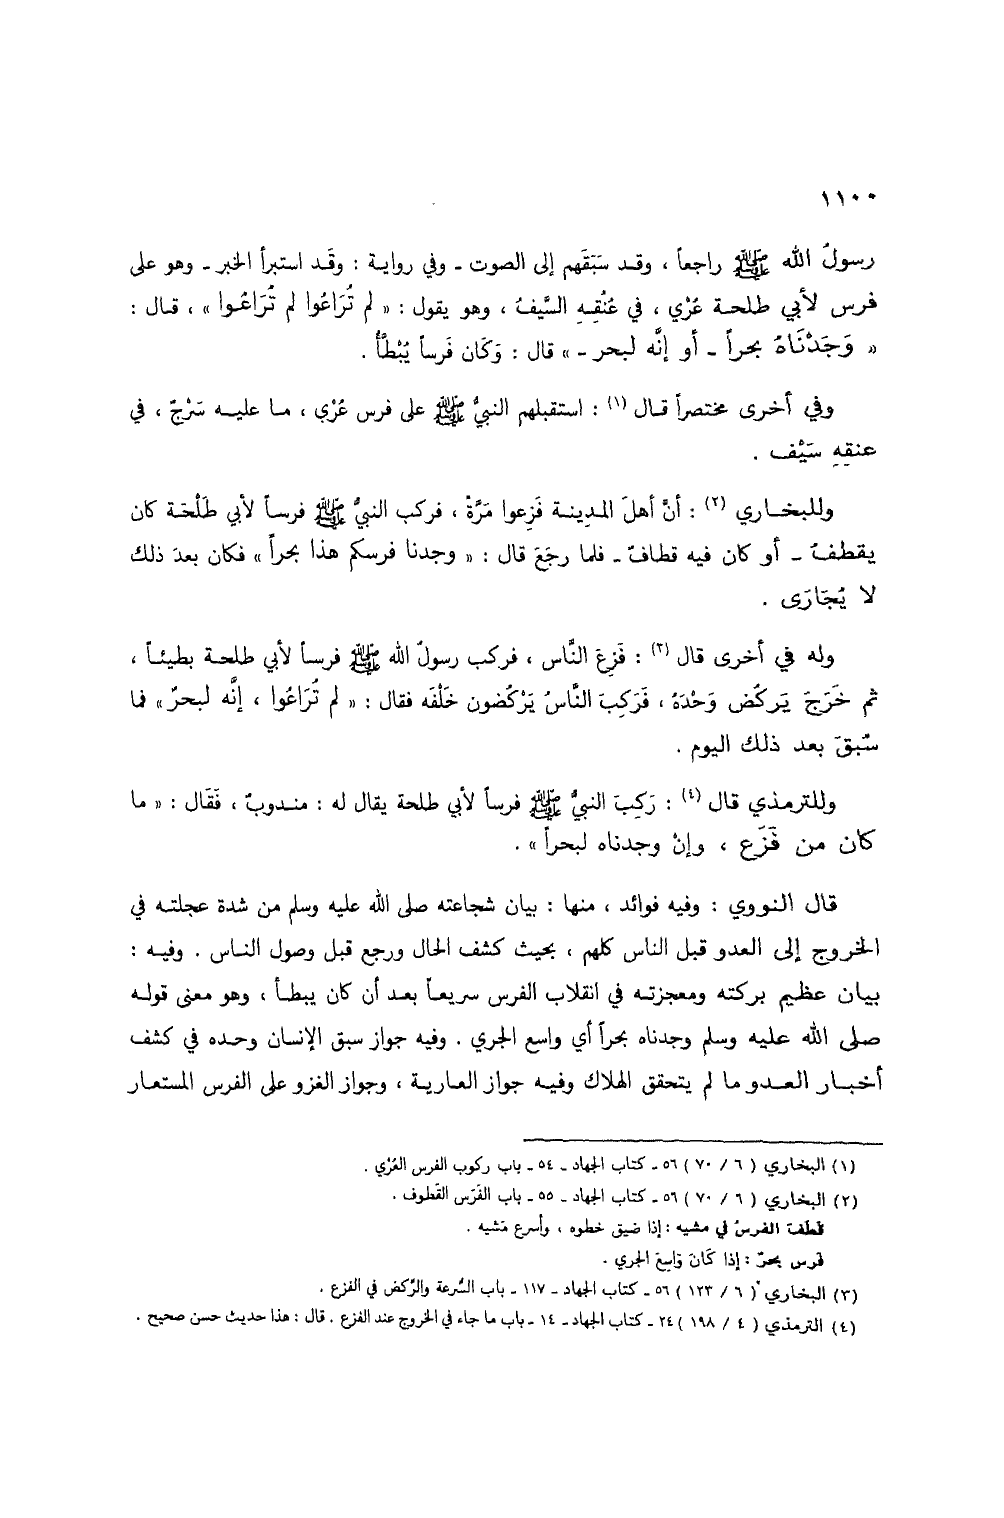 ١١٠٠
رسولُ الله ﷺ راجعاً ، وقد سَبَقَهم إلى الصوت ـ وفي رواية : وقَد استبرأ الخبر ـ وهو على
فرس لأبي طلحة عُرْي ، في عُنُقِهِ السَّيفُ ، وهو يقول : « لم تُرَاعُوا لم تُرَاعُوا » ، قال :
« وَجَدْنَاهُ بحراً ـ أو إنَّه لبحر ـ » قال : وَكَان فَرساً يُبْطَّأُ .
وفي أخرى مختصراً قال (١) : استقبلهم النبيُّ ﷺ على فرس عُرْي ، ما عليه سَرْجٌ ، في
عنقِهِ سَيْف .
وللبخاري (٢) : أنَّ أهلَ المدِينة فَزِعوا مَرَّةً ، فركب النبيُّ ﷺ فرساً لأبي طَلْحَة كان
يقطفُ ـ أو كان فيه قطافٌ ـ فلما رجَعَ قال : « وجدنا فرسكم هذا بحراً » فكان بعدَ ذلك
لا يُجَارَى .
وله في أخرى قال (٣) : فَزِعَ النَّاس ، فركب رسولُ الله ﷺ فرساً لأبي طلحة بطيئاً ،
ثم خَرَجَ يَركُض وَحْدَهُ ، فَرَكِبَ النَّاسُ يَرْكُضون خَلْفَه فقال : « لم تُرَاعُوا ، إنَّه لبحرٌ » فما
سُبقَ بعد ذلك اليوم .
وللترمذي قال (٤) : رَكِبَ النبيُّ ﷺ فرساً لأبي طلحة يقال له : مندوبٌ ، فَقَال : « ما
كان من فَزَع ، وإنْ وجدناه لبحراً » .
قال النووي : وفيه فوائد ، منها : بيان شجاعته صلى الله عليه وسلم من شدة عجلته في
الخروج إلى العدو قبل الناس كلهم ، بحيث كشف الحال ورجع قبل وصول الناس . وفيه :
بيان عظيم بركته ومعجزته في انقلاب الفرس سريعاً بعد أن كان يبطأ ، وهو معنى قوله
صلى الله عليه وسلم وجدناه بحراً أي واسع الجري . وفيه جواز سبق الإنسان وحده في كشف
أخبار العدو ما لم يتحقق الهلاك وفيه جواز العارية ، وجواز الغزو على الفرس المستعار
(١) البخاري ( ٦ / ٧٠ ) ٥٦ ـ كتاب الجهاد ـ ٥٤ ـ باب ركوب الفرس العُرْي .
(٢) البخاري ( ٦ / ٧٠ ) ٥٦ ـ كتاب الجهاد ـ ٥٥ ـ باب الفَرَس القَطوف .
قطَفَ الفرسُ في مشيه : إذا ضيق خطوه ، وأسرع مَشيه .
فرس بحرٌ : إذا كَانَ وَاسِعَ الجري .
(٣) البخاري ( ٦ / ١٢٣ ) ٥٦ ـ كتاب الجهاد ـ ١١٧ ـ باب السُّرعة والرَّكض في الفزع .
(٤) الترمذي ( ٤ / ١٩٨ ) ٢٤ ـ كتاب الجهاد ـ ١٤ ـ باب ما جاء في الخروج عند الفزع . قال : هذا حديث حسن صحيح .